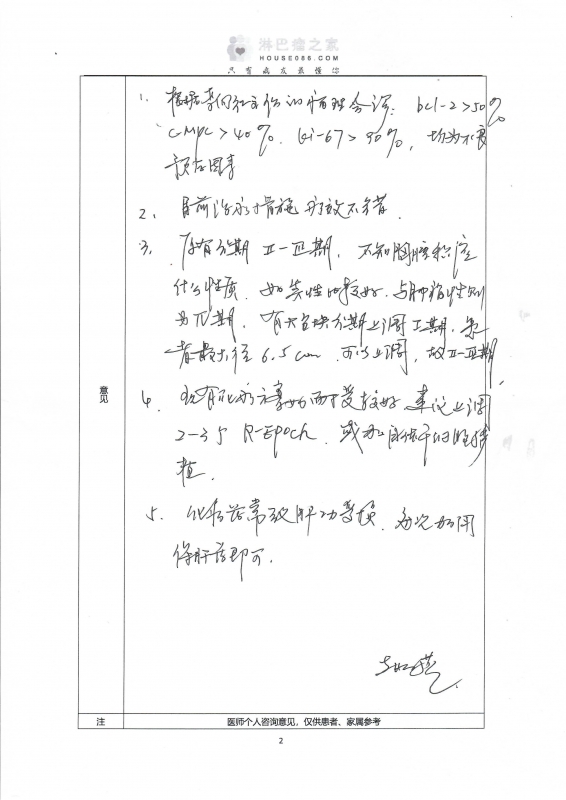 淋巴瘤之家
HOUSE086.COM
只有病友最懂你
意见
1. 根据 病理会诊: bcl-2>50%
C-myc>40%. Ki-67>90%, 均为不良
预后因素
2. 目前治疗措施 疗效不错.
3. 原有分期 II-III期, 不知胸腔积液
什么性质. 如 性的较好. 与肿瘤性则
为IV期. 有大包块分期上调I期, 患
者最大径6.5cm 可以上调, 故II-III期
4. 现有化疗方案 而 受较好 建议上调
2-3 R-EPOCH, 或 自体干细胞移
植.
5. 化疗后常致肝功 损, 每次加用
保肝药即可.
注
医师个人咨询意见,仅供患者、家属参考
2